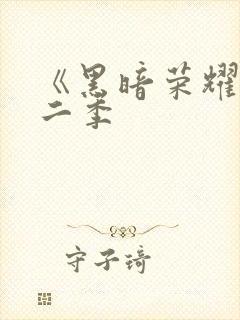 《黑暗荣耀
二季
守子琦